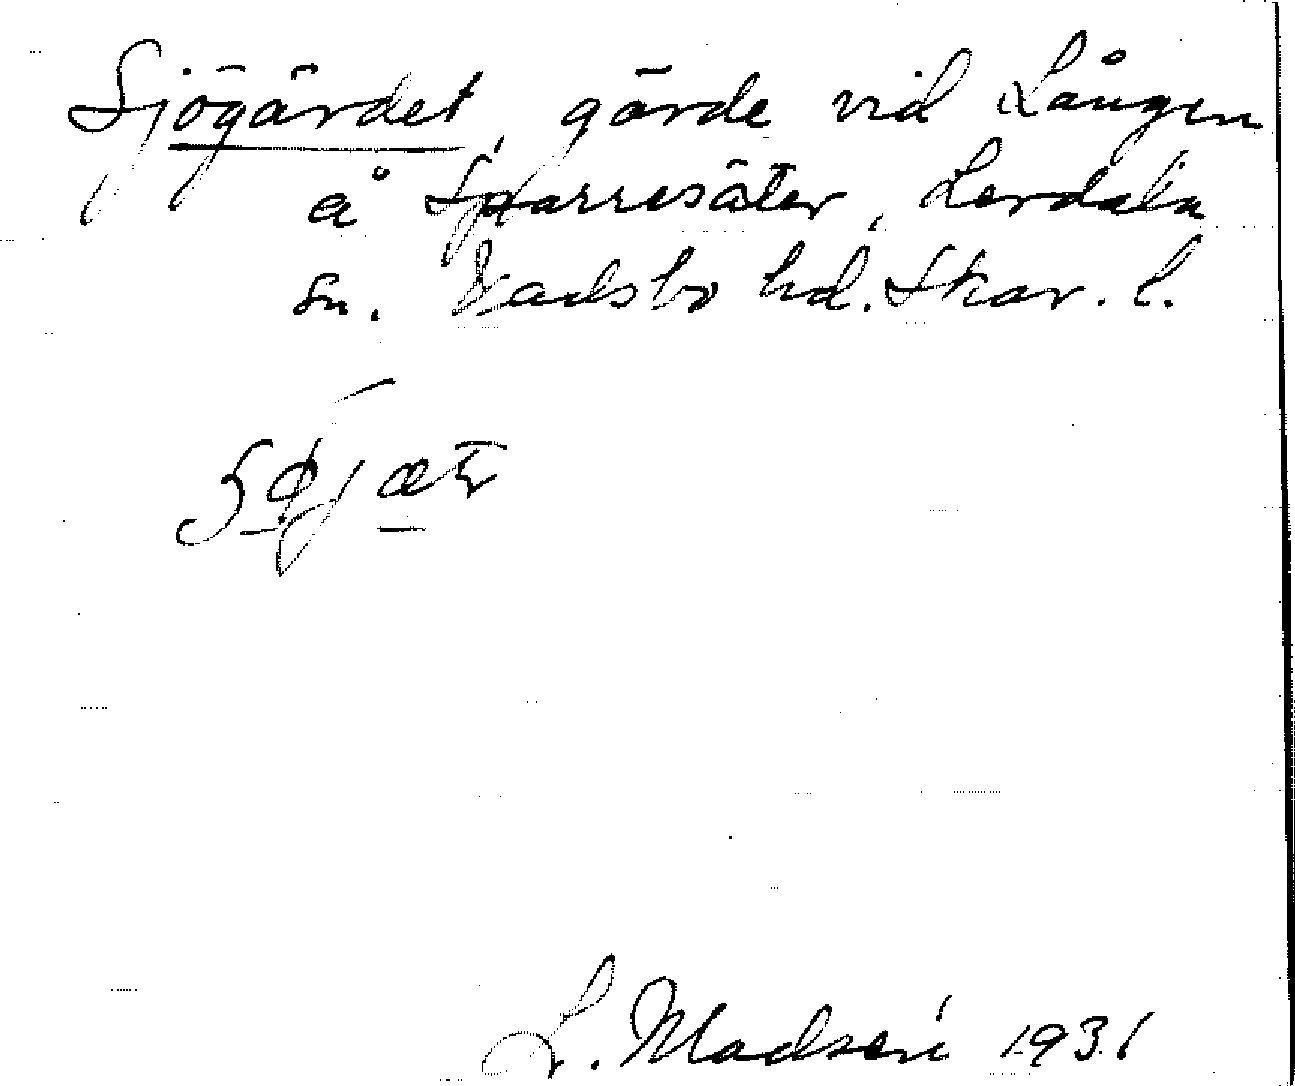 Sjögärdet, gärde vid Lången
å Sparresäter, Lerdala
sn. Vadsbo hd. Skar. l.
L. Madsén 1931